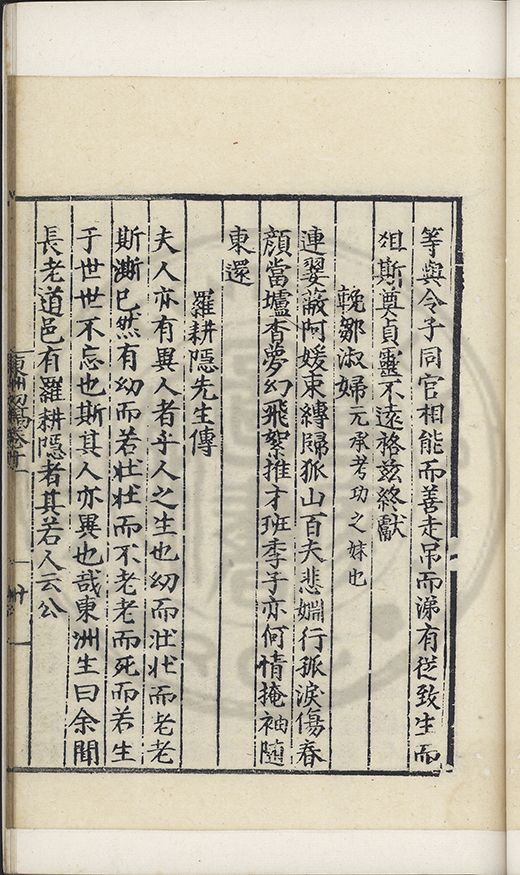 等與令子同官相能而善走吊而涕有從致生而
徂斯奠貞靈不遠袼兹終獻
輓鄒淑婦元承考功之妹也
連翣蔽阿媛束縳歸狐山百夫悲婣行孤淚傷春
顔當壚杳夢幻飛絮推才班季子亦何情掩袖随
東還
羅耕隱先生傳
夫人亦有異人者乎人之生也幼而壮壮而老老
斯澌已然有幼而若壮壮而不老老而死而若生
于世世不忘也斯其人亦異也哉東洲生曰余聞
長老道邑有羅耕隱者其若人云公
東洲初稿卷十